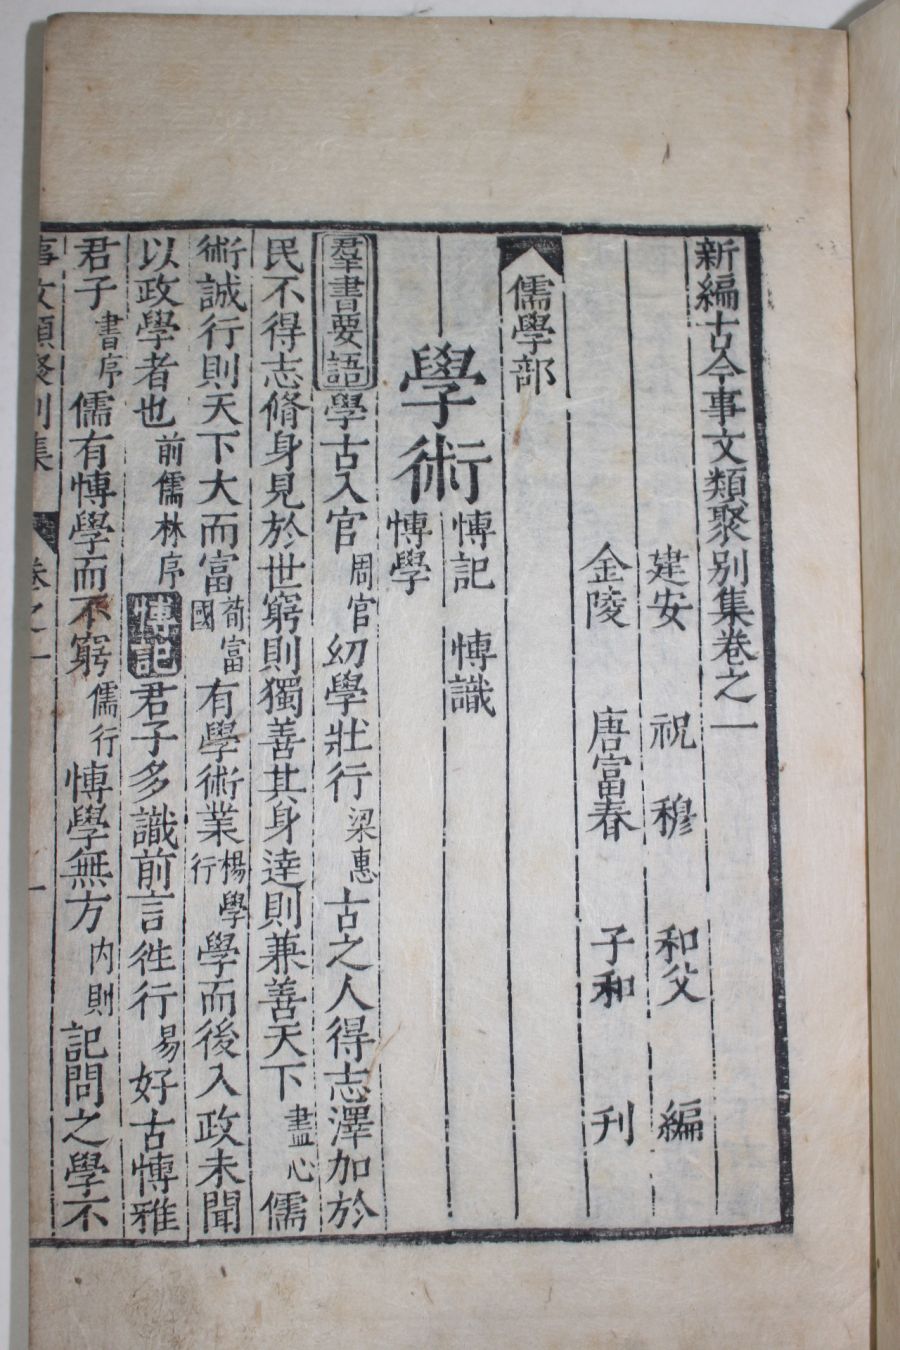 新編古今事文類聚別集卷之一
建安 祝 穆 和父 編
金陵 唐富春 子和 刊
儒學部
學術 愽記 愽識 愽學
羣書要語 學古入官 周官 幼學壯行 梁惠 古之人得志澤加於
民不得志脩身見於世窮則獨善其身達則兼善天下 盡心 儒
術誠行則天下大而富 荀富國 有學術業 楊學行 學而後入政未聞
以政學者也 前儒林序 愽記 君子多識前言徃行 易 好古愽雅
君子 書序 儒有愽學而不窮 儒行 愽學無方 内則 記問之學不
事文類聚別集 卷之一 一